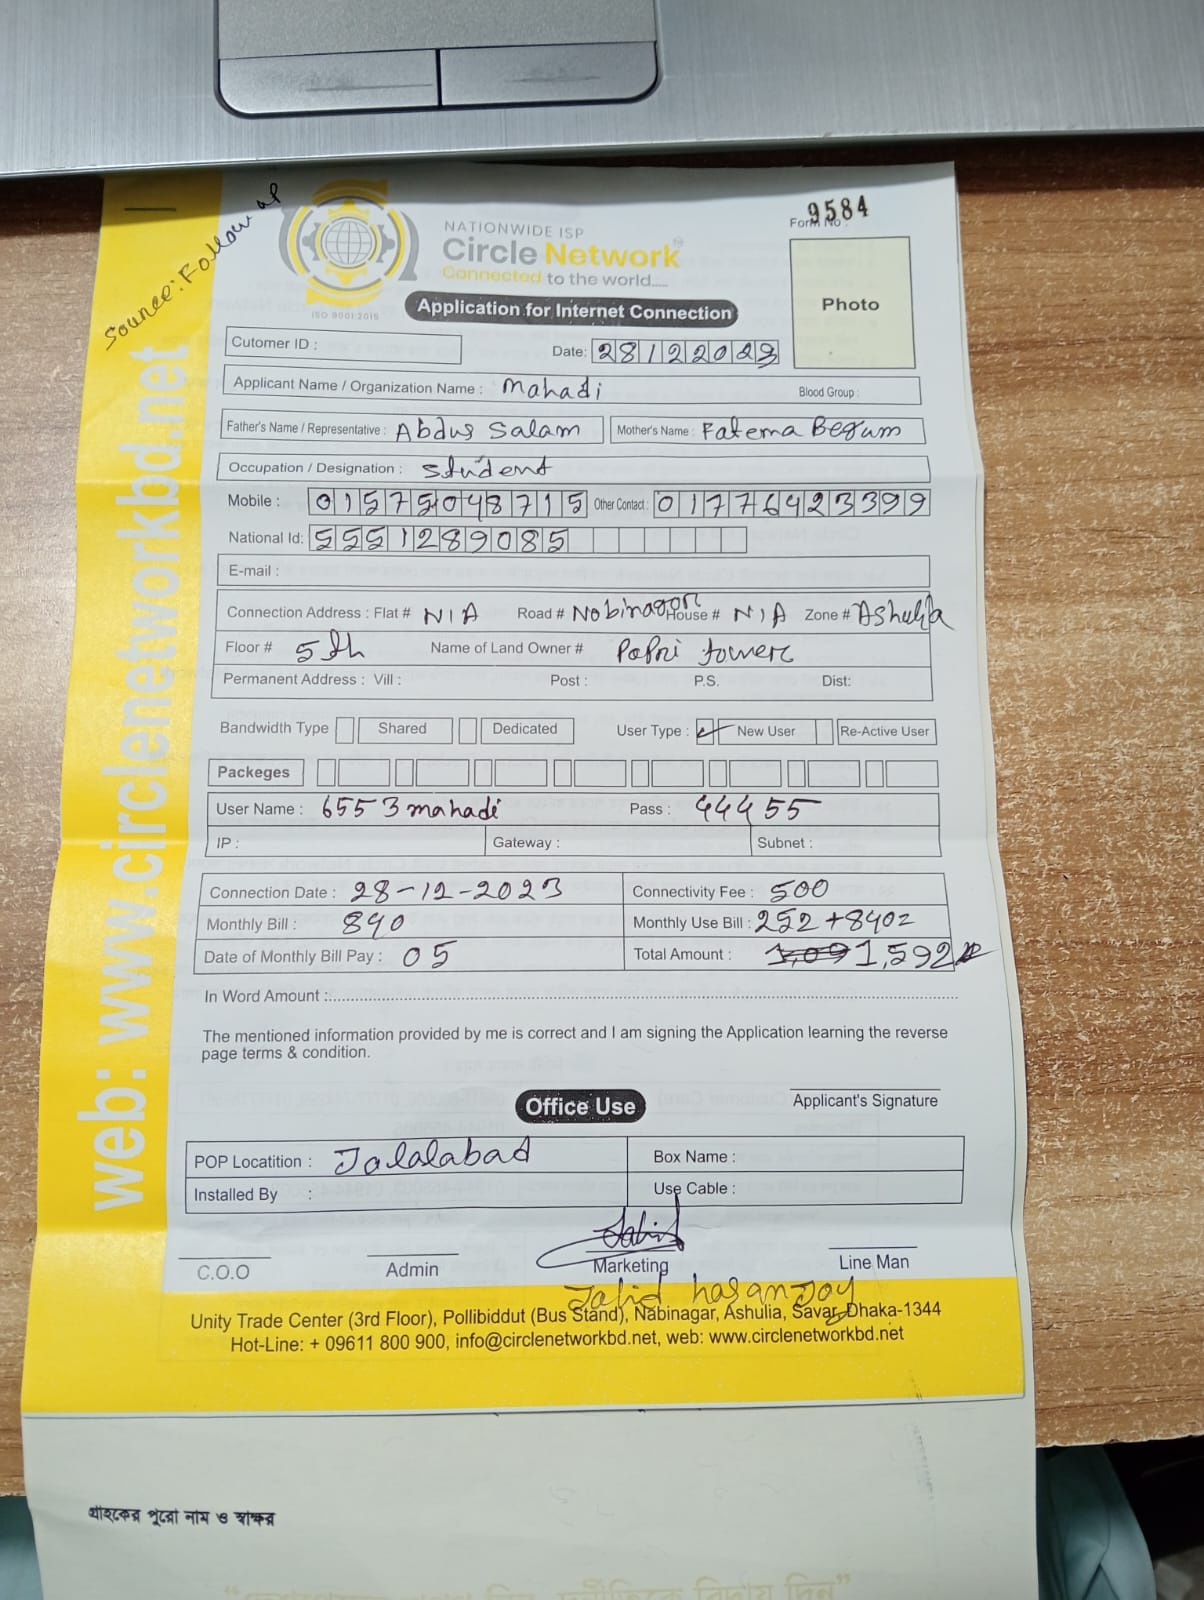 Source: Follow up
Form No : 9584
NATIONWIDE ISP
Circle Network
Connected to the world.....
ISO 9001:2015
Application for Internet Connection
Photo
Cutomer ID :
Date: 28122023
Applicant Name / Organization Name : Mahadi Blood Group :
Father's Name / Representative : Abdus Salam Mother's Name : Fatema Begum
Occupation / Designation : Student
Mobile : 01575048715 Other Contact : 01776423399
National Id: 5551289085
E-mail :
Connection Address : Flat # N/A Road # Nobinagor House # N/A Zone # Ashulia
Floor # 5th Name of Land Owner # Papri tower
Permanent Address : Vill : Post : P.S. Dist:
Bandwidth Type Shared Dedicated User Type : New User Re-Active User
Packeges
User Name : 6553mahadi Pass : 44455
IP : Gateway : Subnet :
Connection Date : 28-12-2023 Connectivity Fee : 500
Monthly Bill : 840 Monthly Use Bill : 252+840=
Date of Monthly Bill Pay : 05 Total Amount : 1,592
In Word Amount :
The mentioned information provided by me is correct and I am signing the Application learning the reverse
page terms & condition.
Applicant's Signature
Office Use
POP Locatition : Jalalabad Box Name :
Installed By : Use Cable :
C.O.O Admin Marketing Line Man
Jahid hasan Joy
Unity Trade Center (3rd Floor), Pollibiddut (Bus Stand), Nabinagar, Ashulia, Savar, Dhaka-1344
Hot-Line: + 09611 800 900, info@circlenetworkbd.net, web: www.circlenetworkbd.net
web: www.circlenetworkbd.net
গ্রাহকের পুরো নাম ও স্বাক্ষর